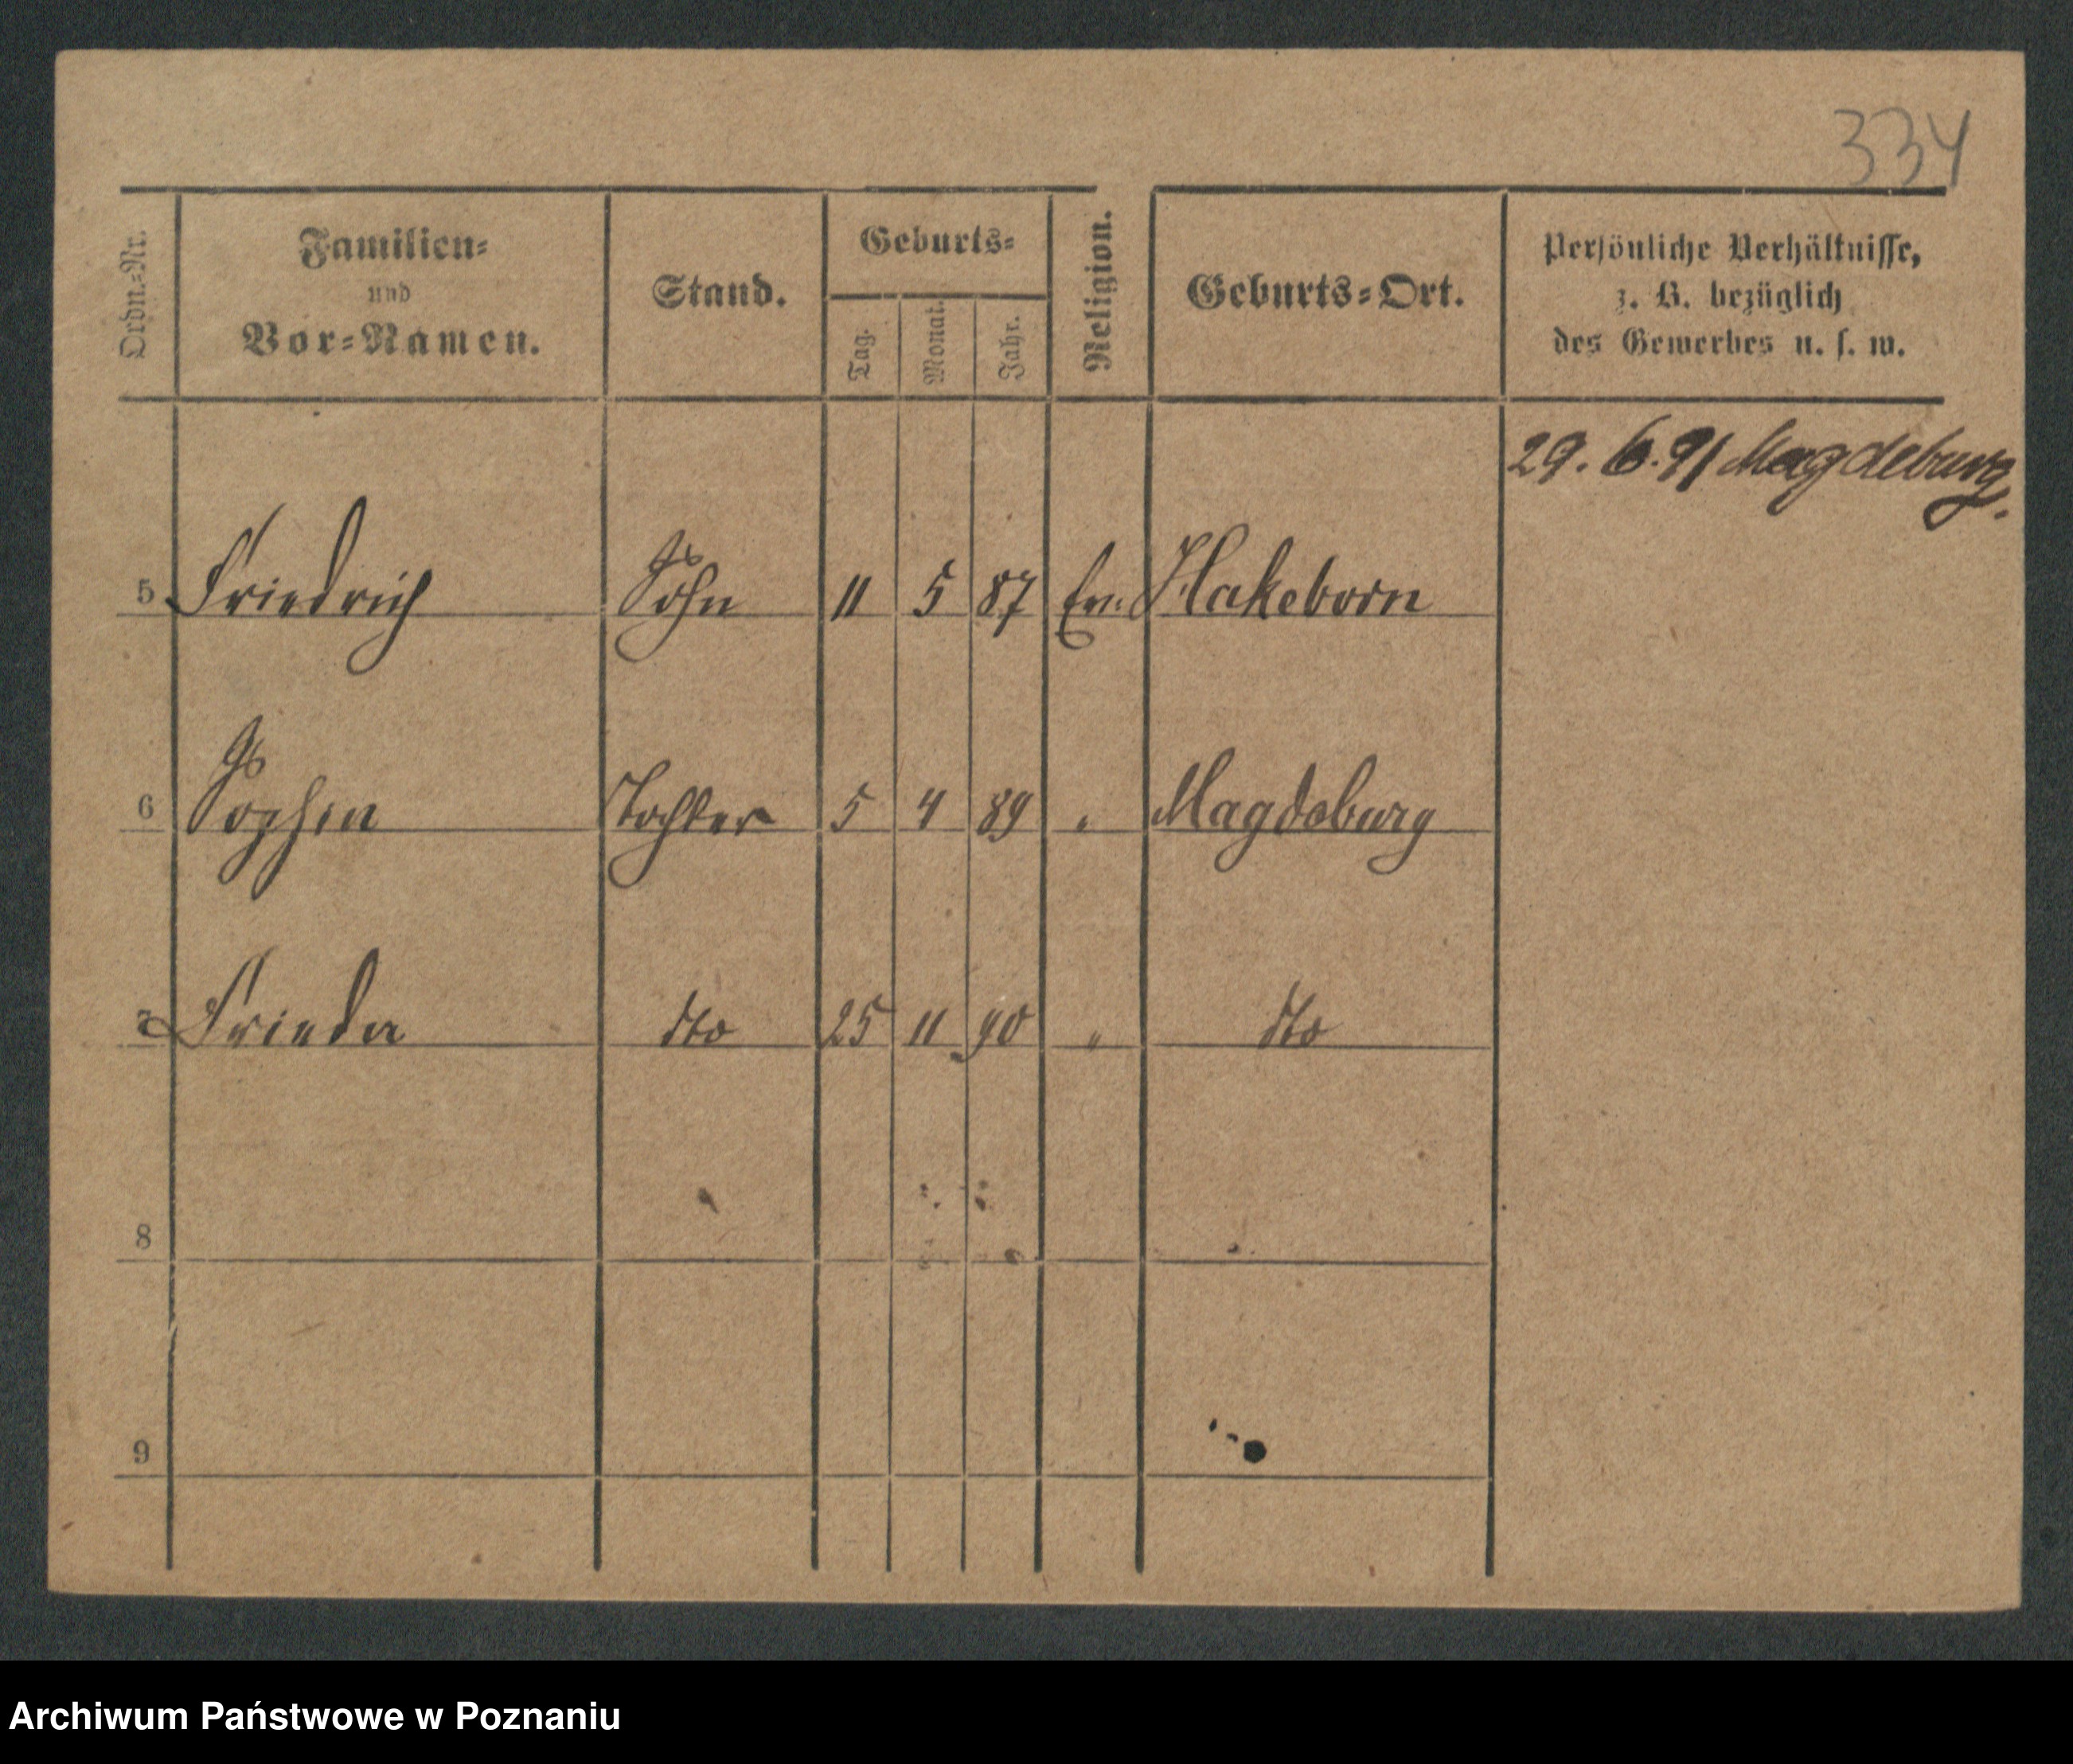 334
Ordn.-Nr.
Familien-
und
Vor-Namen.
Stand.
Geburts-
Tag.
Monat.
Jahr.
Religion.
Geburts-Ort.
Persönliche Verhältnisse,
z. B. bezüglich
des Gewerbes u. s. w.
29. 6. 91 Magdeburg.
5 Friedrich Sohn 11 5 87 Ev. Hakeborn
6 Sophie Tochter 5 4 89 " Magdeburg
7 Frieda dto 25 11 90 " dto
8
9
Archiwum Państwowe w Poznaniu